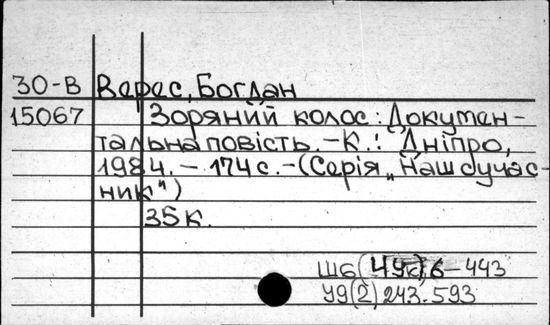 30-В Верес, Богдан
15067 Зоряний колос: Докумен-
тальна повість. – К.: Дніпро,
1984. – 174 с. – (Серія „Наш сучас-
ник")
35 к.
Ш6(4Ук)6–443
У9(2)243.593